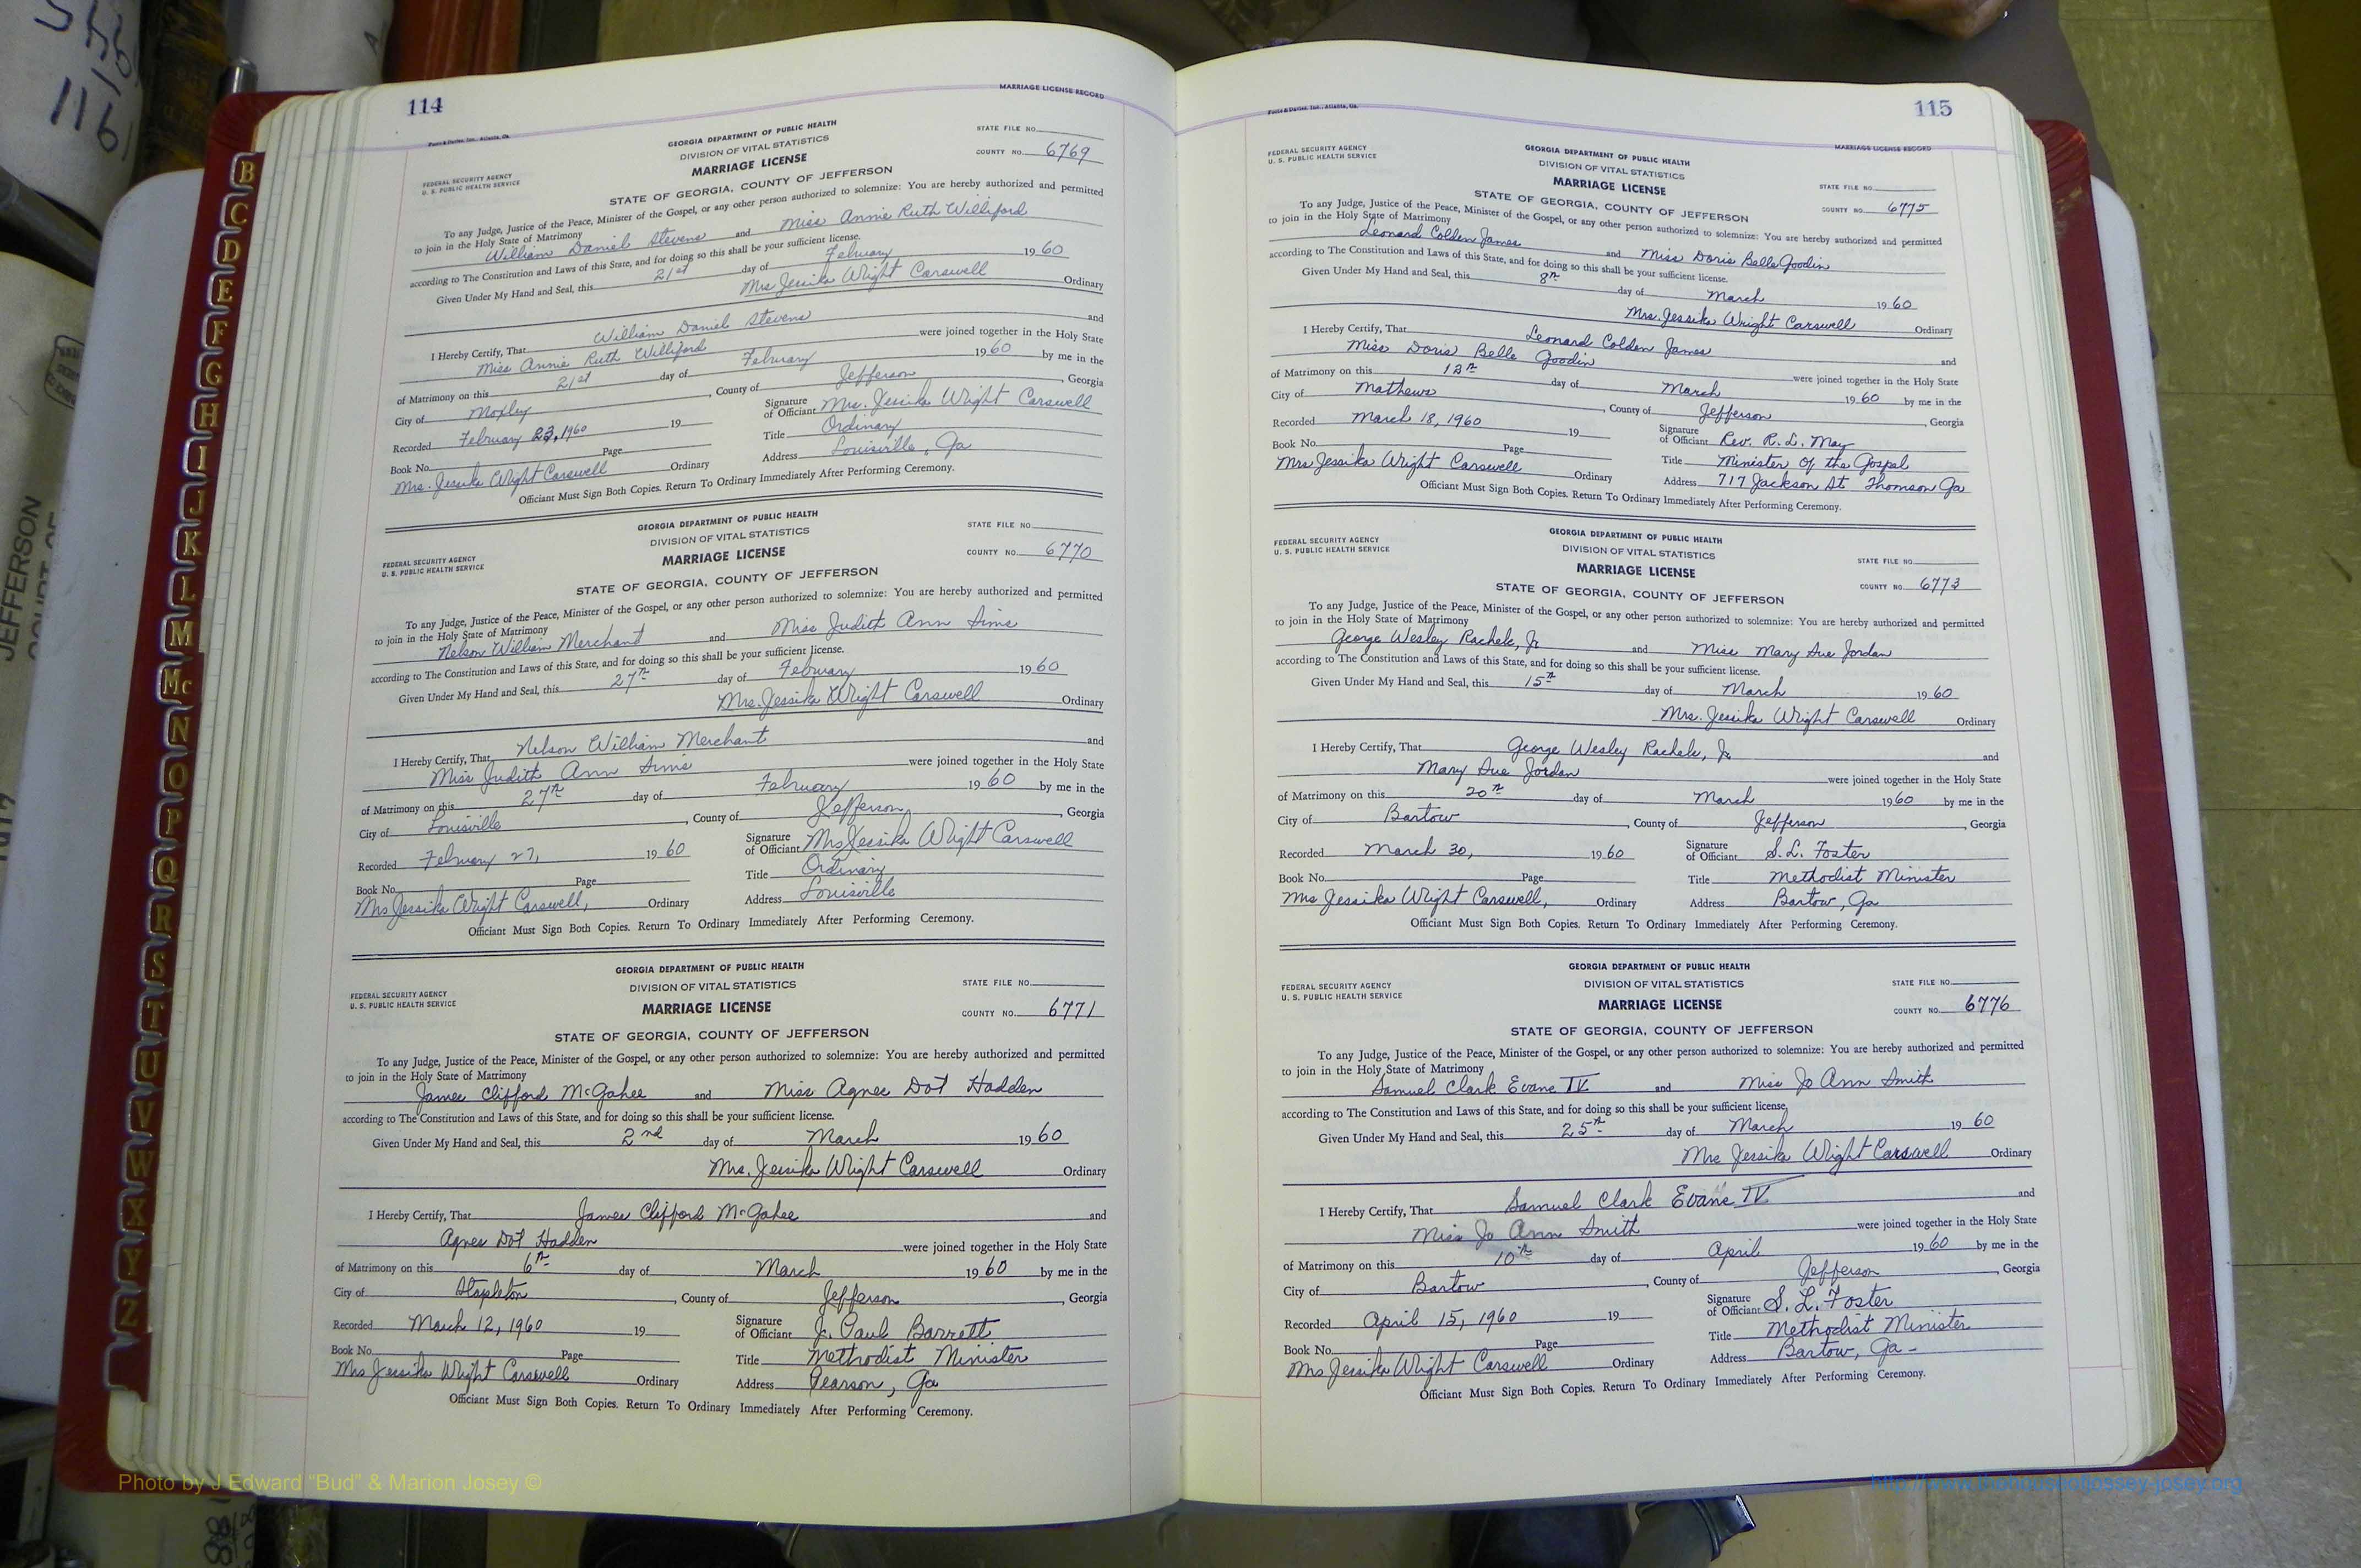 114
MARRIAGE LICENSE RECORD
GEORGIA DEPARTMENT OF PUBLIC HEALTH
DIVISION OF VITAL STATISTICS
MARRIAGE LICENSE
STATE FILE NO.
COUNTY NO. 6769
FEDERAL SECURITY AGENCY
U. S. PUBLIC HEALTH SERVICE
STATE OF GEORGIA, COUNTY OF JEFFERSON
To any Judge, Justice of the Peace, Minister of the Gospel, or any other person authorized to solemnize: You are hereby authorized and permitted
to join in the Holy State of Matrimony
William Daniel Stevens and Miss Annie Ruth Williford
according to The Constitution and Laws of this State, and for doing so this shall be your sufficient license.
Given Under My Hand and Seal, this 21st day of February 1960
Mrs Jessika Wright Carswell Ordinary
I Hereby Certify, That William Daniel Stevens and
Miss Annie Ruth Williford were joined together in the Holy State
of Matrimony on this 21st day of February 1960 by me in the
City of Moxley, County of Jefferson, Georgia
Recorded February 23, 1960 19
Signature of Officiant Mrs. Jessika Wright Carswell
Book No. Page
Title Ordinary
Mrs. Jessika Wright Carswell Ordinary
Address Louisville, Ga
Officiant Must Sign Both Copies. Return To Ordinary Immediately After Performing Ceremony.
GEORGIA DEPARTMENT OF PUBLIC HEALTH
DIVISION OF VITAL STATISTICS
MARRIAGE LICENSE
STATE FILE NO.
COUNTY NO. 6770
FEDERAL SECURITY AGENCY
U. S. PUBLIC HEALTH SERVICE
STATE OF GEORGIA, COUNTY OF JEFFERSON
To any Judge, Justice of the Peace, Minister of the Gospel, or any other person authorized to solemnize: You are hereby authorized and permitted
to join in the Holy State of Matrimony
Nelson William Merchant and Miss Judith Ann Sims
according to The Constitution and Laws of this State, and for doing so this shall be your sufficient license.
Given Under My Hand and Seal, this 27th day of February 1960
Mrs. Jessika Wright Carswell Ordinary
I Hereby Certify, That Nelson William Merchant and
Miss Judith Ann Sims were joined together in the Holy State
of Matrimony on this 27th day of February 1960 by me in the
City of Louisville, County of Jefferson, Georgia
Recorded February 27, 1960
Signature of Officiant Mrs Jessika Wright Carswell
Book No. Page
Title Ordinary
Mrs Jessika Wright Carswell, Ordinary
Address Louisville
Officiant Must Sign Both Copies. Return To Ordinary Immediately After Performing Ceremony.
GEORGIA DEPARTMENT OF PUBLIC HEALTH
DIVISION OF VITAL STATISTICS
MARRIAGE LICENSE
STATE FILE NO.
COUNTY NO. 6771
FEDERAL SECURITY AGENCY
U. S. PUBLIC HEALTH SERVICE
STATE OF GEORGIA, COUNTY OF JEFFERSON
To any Judge, Justice of the Peace, Minister of the Gospel, or any other person authorized to solemnize: You are hereby authorized and permitted
to join in the Holy State of Matrimony
James Clifford McGahee and Miss Agnes Dot Hadden
according to The Constitution and Laws of this State, and for doing so this shall be your sufficient license.
Given Under My Hand and Seal, this 2nd day of March 1960
Mrs. Jessika Wright Carswell Ordinary
I Hereby Certify, That James Clifford McGahee and
Agnes Dot Hadden were joined together in the Holy State
of Matrimony on this 6th day of March 1960 by me in the
City of Stapleton, County of Jefferson, Georgia
Recorded March 12, 1960 19
Signature of Officiant J. Paul Barrett
Book No. Page
Title Methodist Minister
Mrs Jessika Wright Carswell Ordinary
Address Pearson, Ga
Officiant Must Sign Both Copies. Return To Ordinary Immediately After Performing Ceremony.
115
MARRIAGE LICENSE RECORD
FEDERAL SECURITY AGENCY
U. S. PUBLIC HEALTH SERVICE
GEORGIA DEPARTMENT OF PUBLIC HEALTH
DIVISION OF VITAL STATISTICS
MARRIAGE LICENSE
STATE FILE NO.
COUNTY NO. 6775
STATE OF GEORGIA, COUNTY OF JEFFERSON
To any Judge, Justice of the Peace, Minister of the Gospel, or any other person authorized to solemnize: You are hereby authorized and permitted
to join in the Holy State of Matrimony
Leonard Colden James and Miss Doris Belle Goodin
according to The Constitution and Laws of this State, and for doing so this shall be your sufficient license.
Given Under My Hand and Seal, this 8th day of March 1960
Mrs. Jessika Wright Carswell Ordinary
I Hereby Certify, That Leonard Colden James and
Miss Doris Belle Goodin were joined together in the Holy State
of Matrimony on this 12th day of March 1960 by me in the
City of Mathews, County of Jefferson, Georgia
Recorded March 18, 1960 19
Signature of Officiant Rev. R. L. May
Book No. Page
Title Minister of the Gospel
Mrs Jessika Wright Carswell Ordinary
Address 717 Jackson St Thomson Ga
Officiant Must Sign Both Copies. Return To Ordinary Immediately After Performing Ceremony.
GEORGIA DEPARTMENT OF PUBLIC HEALTH
DIVISION OF VITAL STATISTICS
MARRIAGE LICENSE
STATE FILE NO.
COUNTY NO. 6773
FEDERAL SECURITY AGENCY
U. S. PUBLIC HEALTH SERVICE
STATE OF GEORGIA, COUNTY OF JEFFERSON
To any Judge, Justice of the Peace, Minister of the Gospel, or any other person authorized to solemnize: You are hereby authorized and permitted
to join in the Holy State of Matrimony
George Wesley Rachels, Jr and Miss Mary Sue Jordan
according to The Constitution and Laws of this State, and for doing so this shall be your sufficient license.
Given Under My Hand and Seal, this 15th day of March 1960
Mrs. Jessika Wright Carswell Ordinary
I Hereby Certify, That George Wesley Rachels, Jr and
Mary Sue Jordan were joined together in the Holy State
of Matrimony on this 20th day of March 1960 by me in the
City of Bartow, County of Jefferson, Georgia
Recorded March 30, 1960
Signature of Officiant S. L. Foster
Book No. Page
Title Methodist Minister
Mrs Jessika Wright Carswell, Ordinary
Address Bartow, Ga
Officiant Must Sign Both Copies. Return To Ordinary Immediately After Performing Ceremony.
GEORGIA DEPARTMENT OF PUBLIC HEALTH
DIVISION OF VITAL STATISTICS
MARRIAGE LICENSE
STATE FILE NO.
COUNTY NO. 6776
FEDERAL SECURITY AGENCY
U. S. PUBLIC HEALTH SERVICE
STATE OF GEORGIA, COUNTY OF JEFFERSON
To any Judge, Justice of the Peace, Minister of the Gospel, or any other person authorized to solemnize: You are hereby authorized and permitted
to join in the Holy State of Matrimony
Samuel Clark Evans IV and Miss Jo Ann Smith
according to The Constitution and Laws of this State, and for doing so this shall be your sufficient license.
Given Under My Hand and Seal, this 25th day of March 1960
Mrs Jessika Wright Carswell Ordinary
I Hereby Certify, That Samuel Clark Evans IV and
Miss Jo Ann Smith were joined together in the Holy State
of Matrimony on this 10th day of April 1960 by me in the
City of Bartow, County of Jefferson, Georgia
Recorded April 15, 1960 19
Signature of Officiant S. L. Foster
Book No. Page
Title Methodist Minister
Mrs Jessika Wright Carswell Ordinary
Address Bartow, Ga
Officiant Must Sign Both Copies. Return To Ordinary Immediately After Performing Ceremony.
B
C
D
E
F
G
H
I
J
K
L
M
Mc
N
O
P
Q
R
S
T
U
V
W
X
Y
Z
JEFFERSON
Photo by J Edward "Bud" & Marion Josey ©
http://www.thehouseofjossey-josey.org